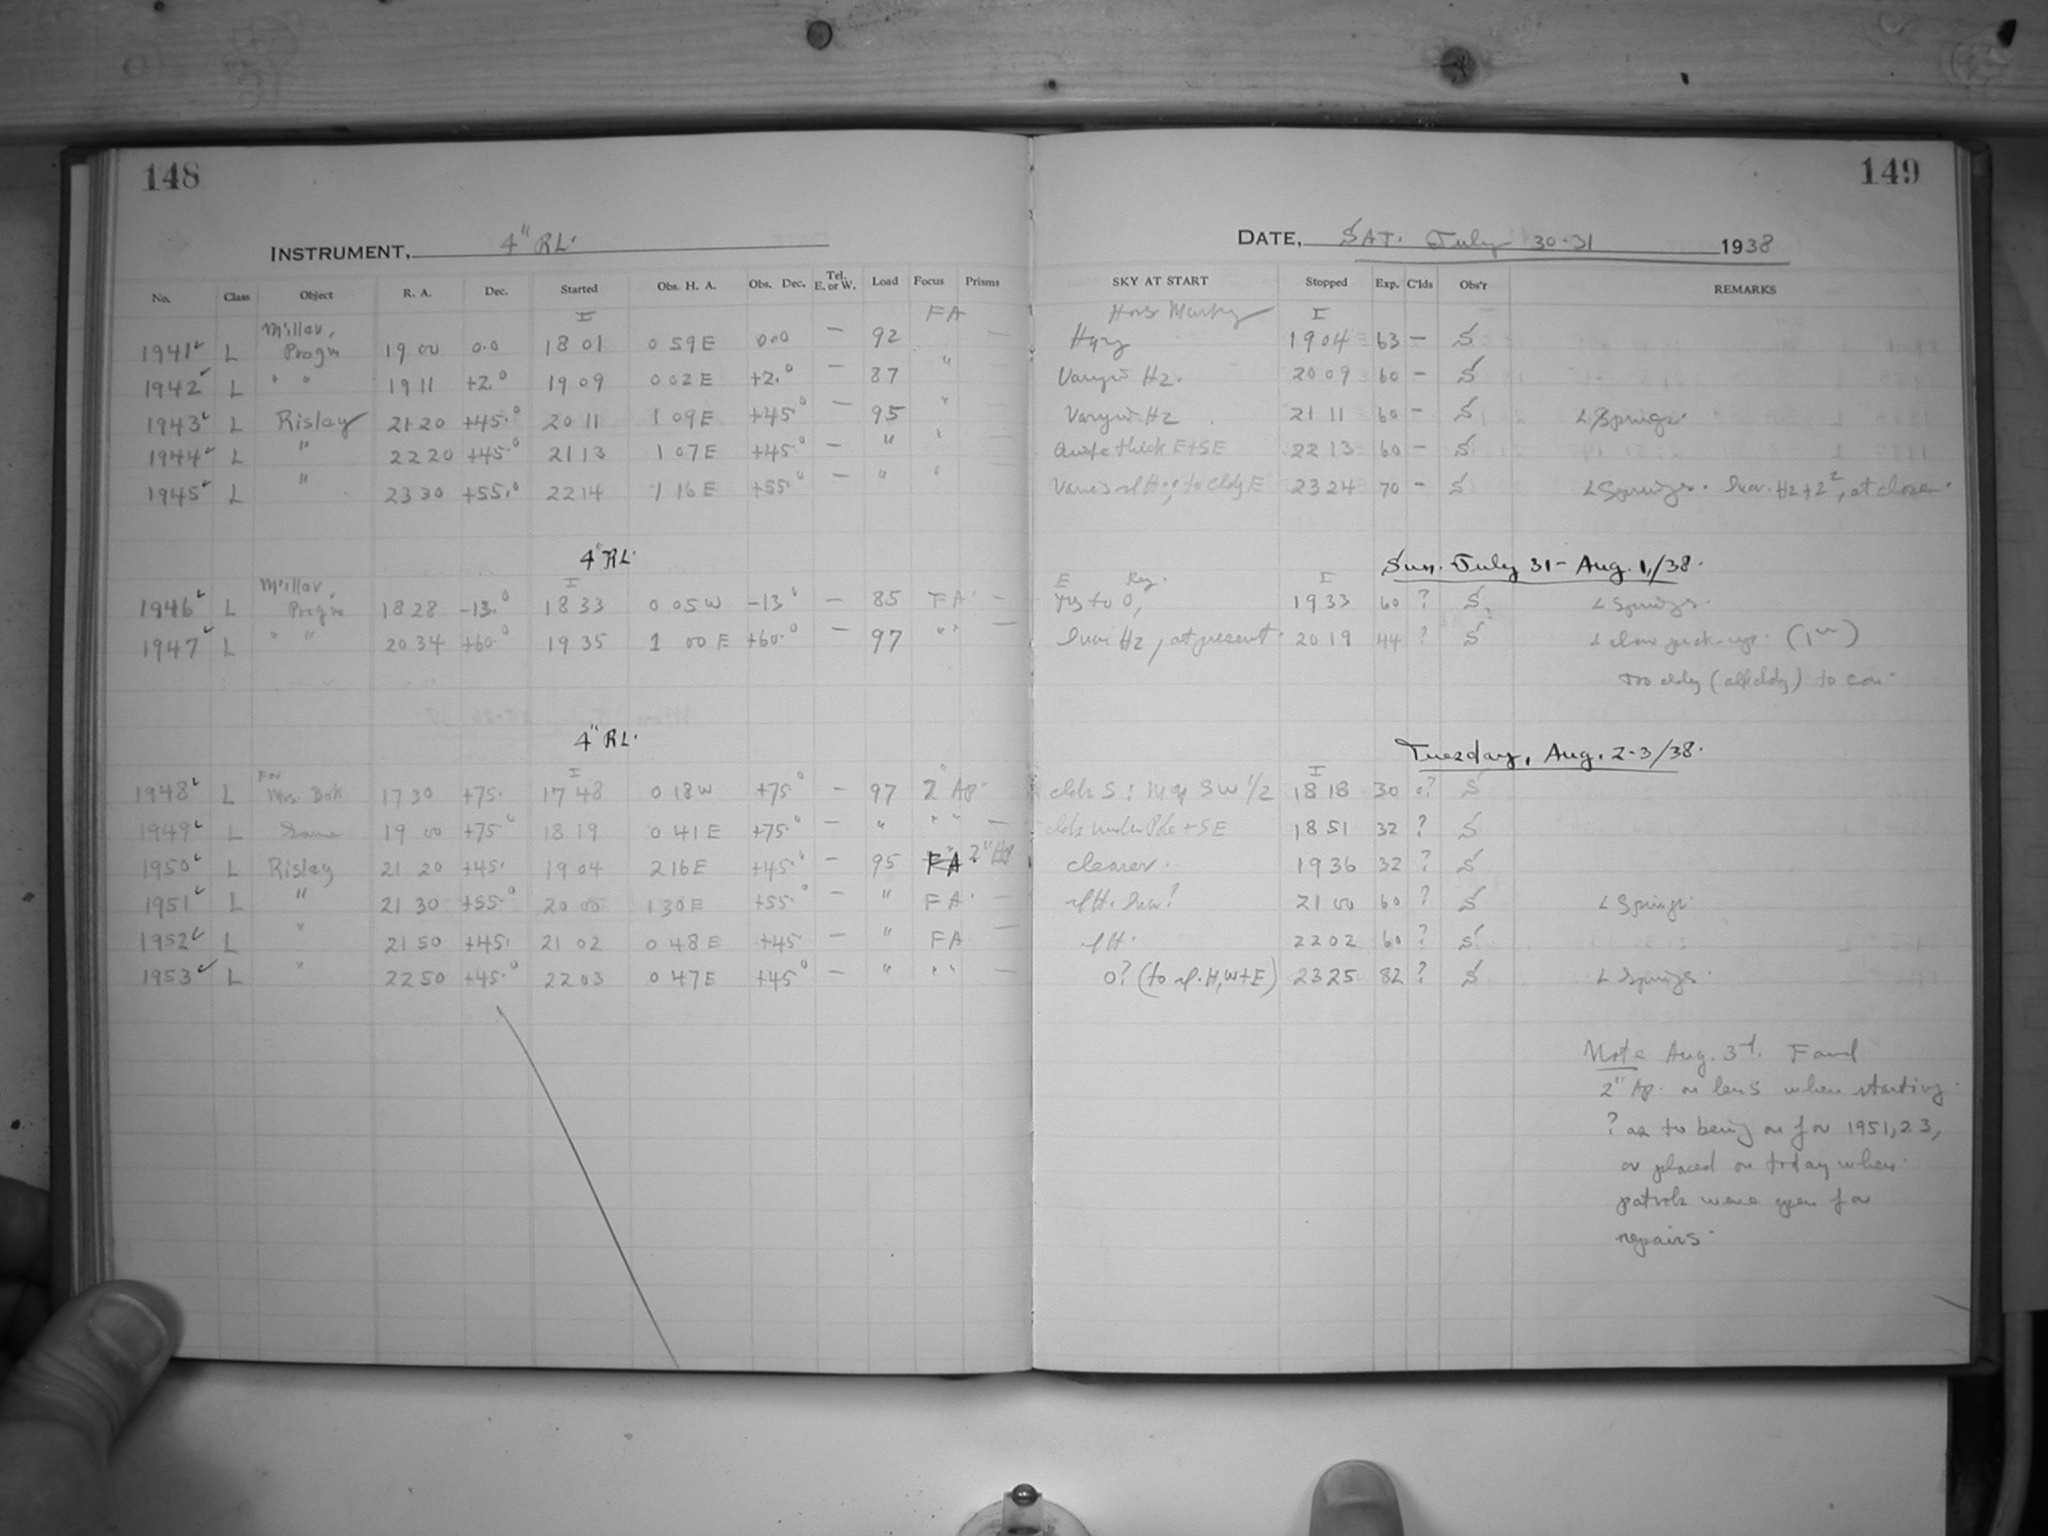 148
149
INSTRUMENT, 4" RL.
DATE, SAT. July 30-31 1938
No. Class Object R. A. Dec. Started Obs. H. A. Obs. Dec. Tel. E. or W. Load Focus Prisms SKY AT START Stopped Exp. C'lds Obs'r REMARKS
I FA I
1941 L Millar. Progm 19 00 0.0 18 01 0 59 E 0.0 — 92 — Hazy 19 04 63 — S
1942 L " " 19 11 +2.° 19 09 0 02 E +2.° — 87 " Hz. 20 09 60 — S
1943 L Risley 21 20 +45.° 20 11 1 09 E +45.° — 95 " Hz 21 11 60 — S L Springs.
1944 L " 22 20 +45.° 21 13 1 07 E +45.° — " " thick E+SE 22 13 60 — S
1945 L " 23 30 +55.° 22 14 1 16 E +55.° — " " 23 24 70 — S L Springs. Hz + 2², at close.
4" RL. Sun. July 31 - Aug. 1,/38.
I I
1946 L Millar. Progm 18 28 -13.° 18 33 0 05 W -13° — 85 FA. — 19 33 60 ? S L Springs.
1947 L " " 20 34 +60.° 19 35 1 00 E +60.° — 97 " " — Hz, at present. 20 19 44 ? S
Too cldy (all cldy) to con.
4" RL. Tuesday, Aug. 2-3/38.
I I
1948 L For Mrs. Bok 17 30 +75. 17 48 0 18 W +75° — 97 2" Ap. clds S; SW 1/2 18 18 30 ? S
1949 L Same 19 00 +75° 18 19 0 41 E +75.° — " " " — clds under Pole + SE 18 51 32 ? S
1950 L Risley 21 20 +45. 19 04 2 16 E +45.° — 95 FA. 2" Ap clearer. 19 36 32 ? S
1951 L " 21 30 +55.° 20 00 1 30 E +55.° — " FA. — 21 00 60 ? S L Springs.
1952 L " 21 50 +45. 21 02 0 48 E +45 — " FA — sl H. 22 02 60 ? S
1953 L " 22 50 +45.° 22 03 0 47 E +45° — " " " — 0? (to sl. H, W+E) 23 25 82 ? S L Springs.
Note Aug. 3d. Found
2" Ap. on lens when starting.
? as to being on for 1951, 2 3,
or placed on today when
patrols were open for
repairs.